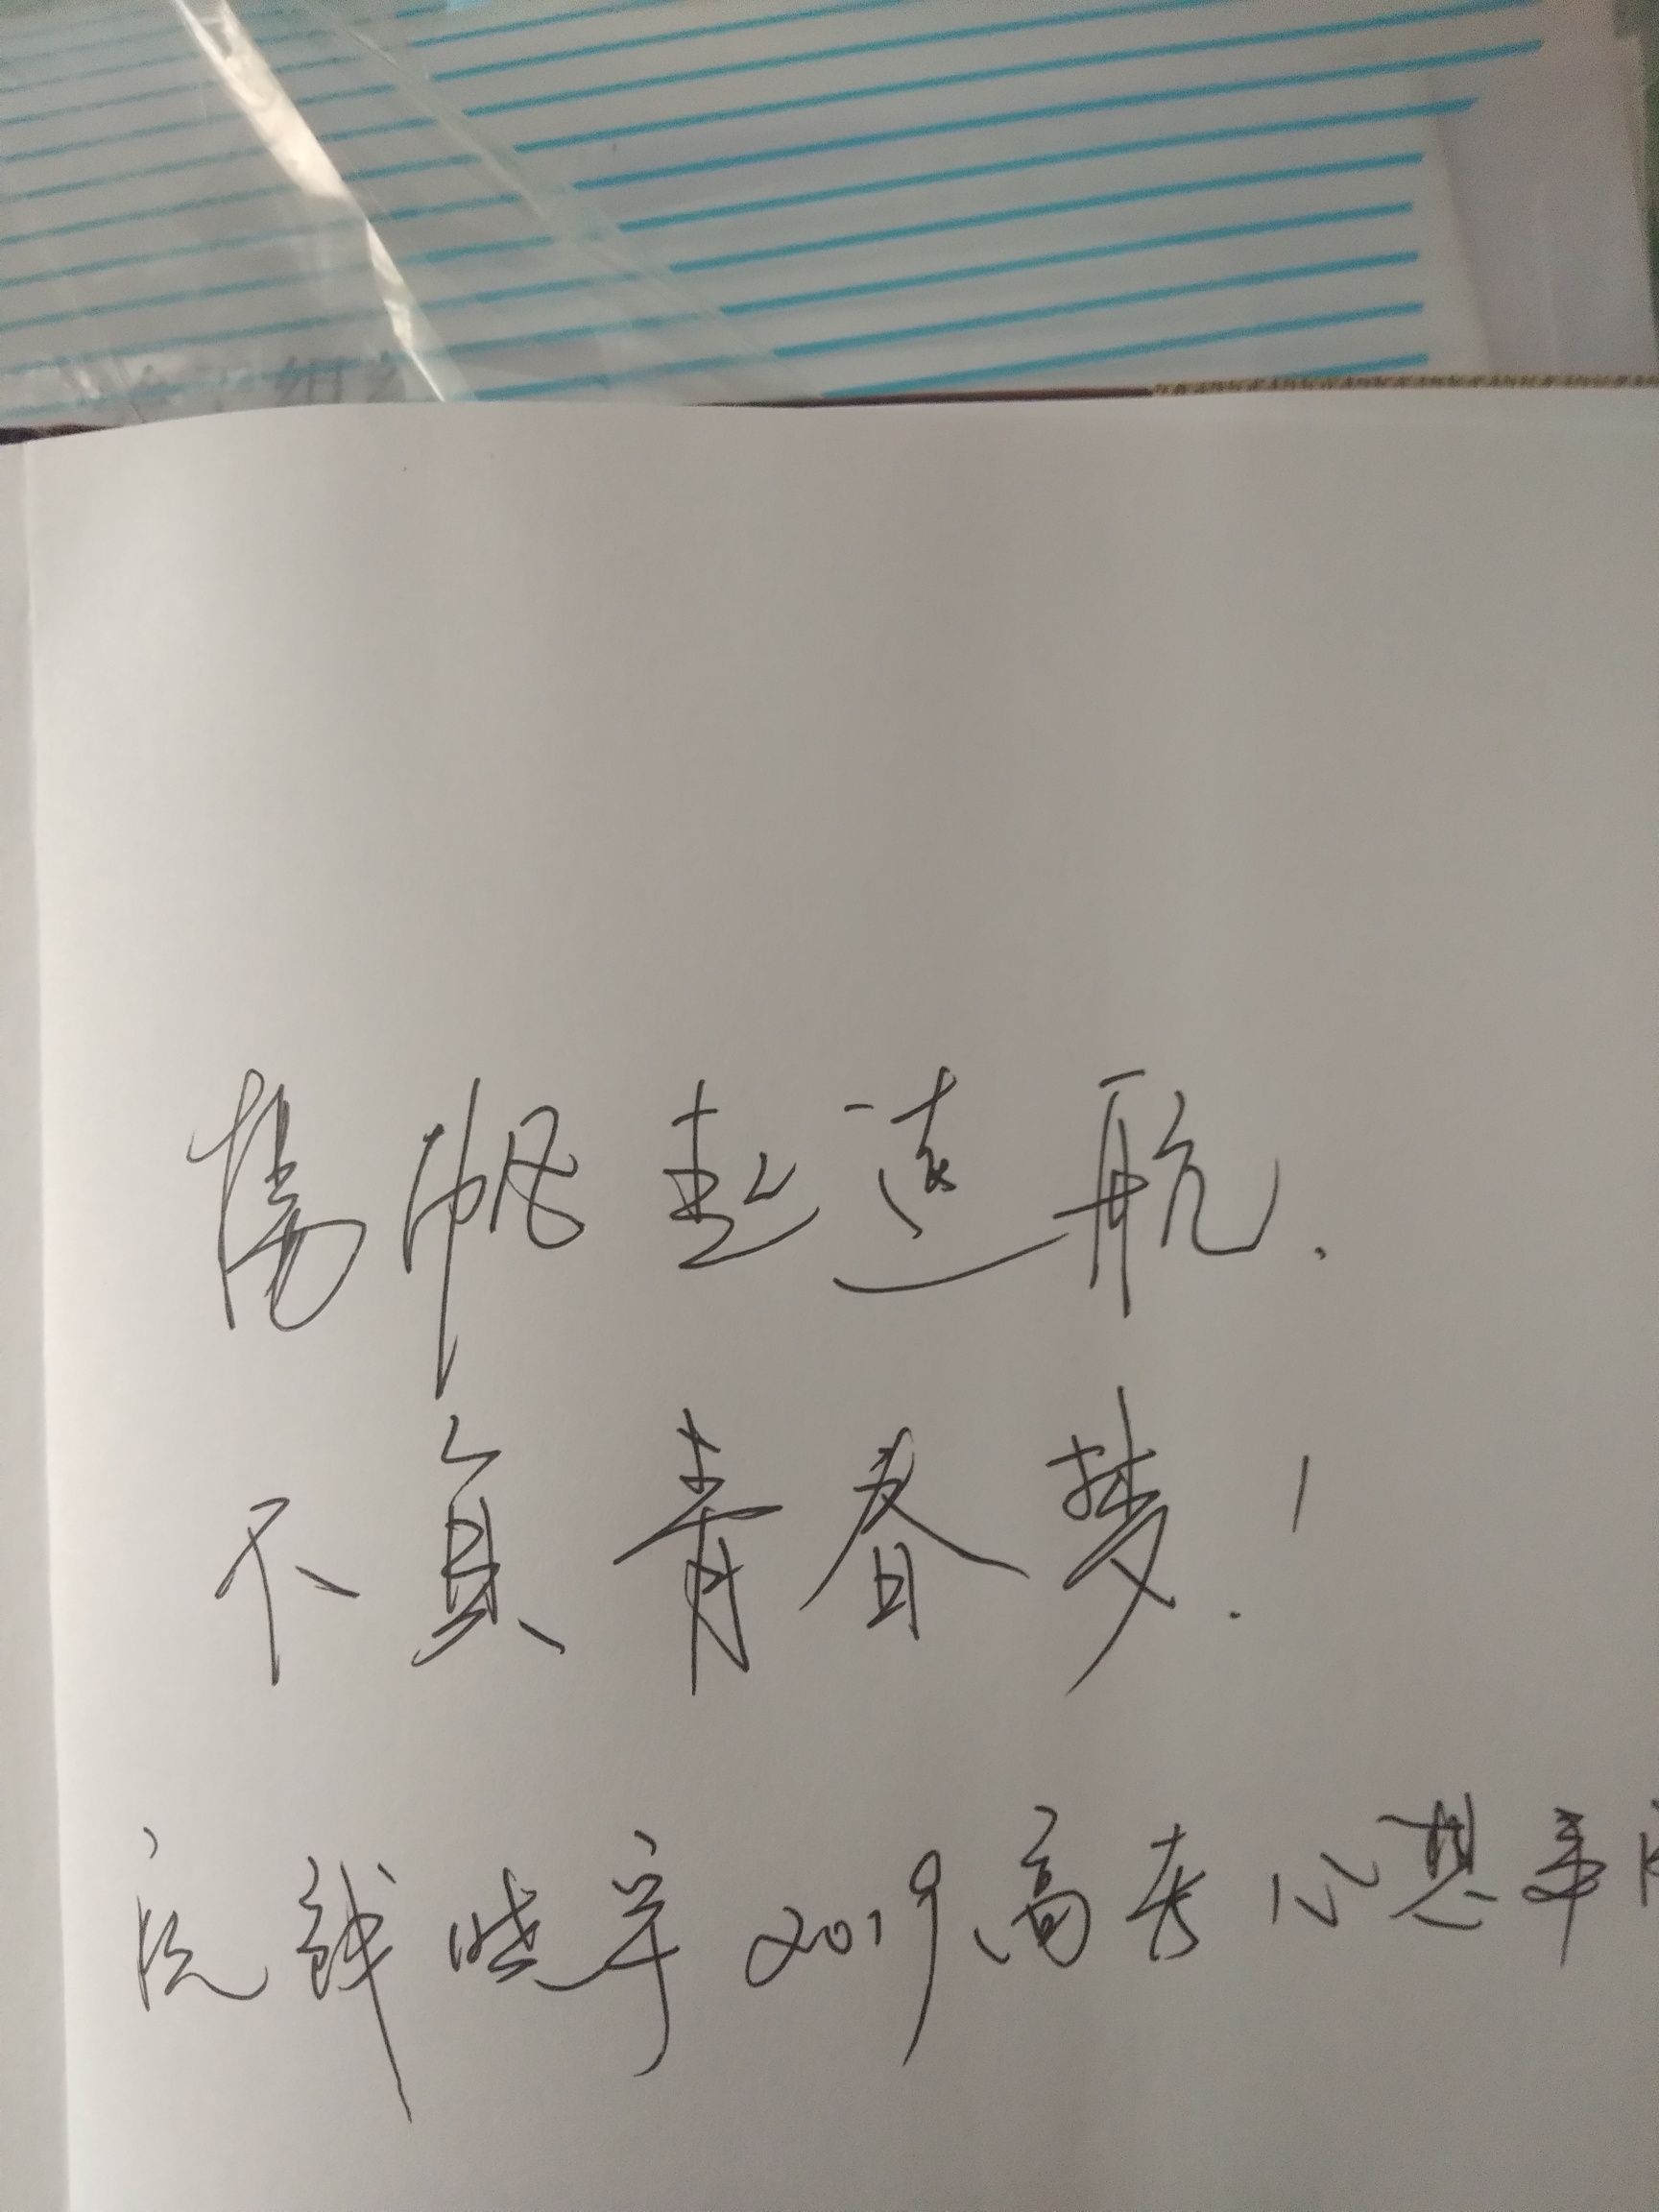 扬帆起远航.
不负青春梦!
祝钱晓宇2019高考心想事